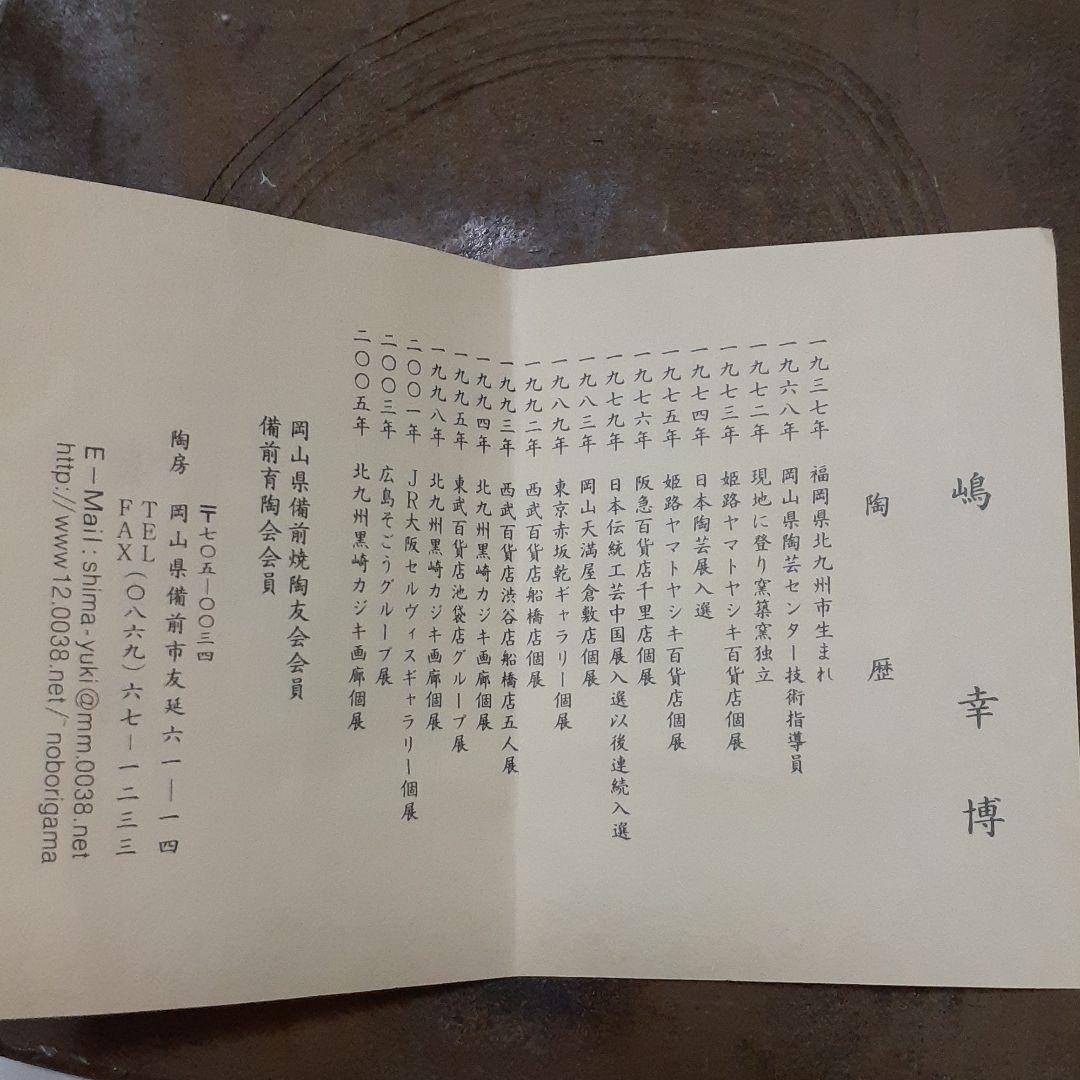 嶋 幸博
陶歴
一九三七年 福岡県北九州市生まれ
一九六八年 岡山県陶芸センター技術指導員
一九七二年 現地に登り窯築窯独立
一九七三年 姫路ヤマトヤシキ百貨店個展
一九七四年 日本陶芸展入選
一九七五年 姫路ヤマトヤシキ百貨店個展
一九七六年 阪急百貨店千里店個展
一九七九年 日本伝統工芸中国展入選以後連続入選
一九八三年 岡山天満屋倉敷店個展
一九八九年 東京赤坂乾ギャラリー個展
一九九二年 西武百貨店船橋店個展
一九九三年 西武百貨店渋谷店船橋店五人展
一九九四年 北九州黒崎カジキ画廊個展
一九九五年 東武百貨店池袋店グループ展
一九九八年 北九州黒崎カジキ画廊個展
二〇〇一年 JR大阪セルヴィスギャラリー個展
二〇〇三年 広島そごうグループ展
二〇〇五年 北九州黒崎カジキ画廊個展
岡山県備前焼陶友会会員
備前育陶会会員
〒七〇五―〇〇三四
陶房 岡山県備前市友延六一―一四
TEL
FAX (〇八六九)六七―一二三三
E-Mail:shima-yuki@mm.0038.net
http://www12.0038.net/~noborigama